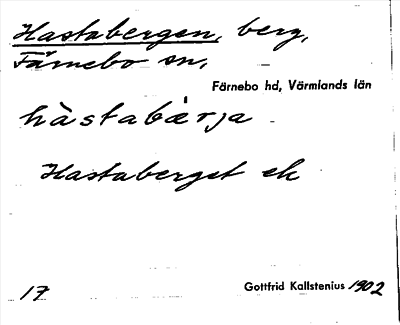 Hastabergen, berg,
Färnebo sn,
Färnebo hd, Värmlands län
hàstabær̀ja
Hastaberget ek
17
Gottfrid Kallstenius 1902